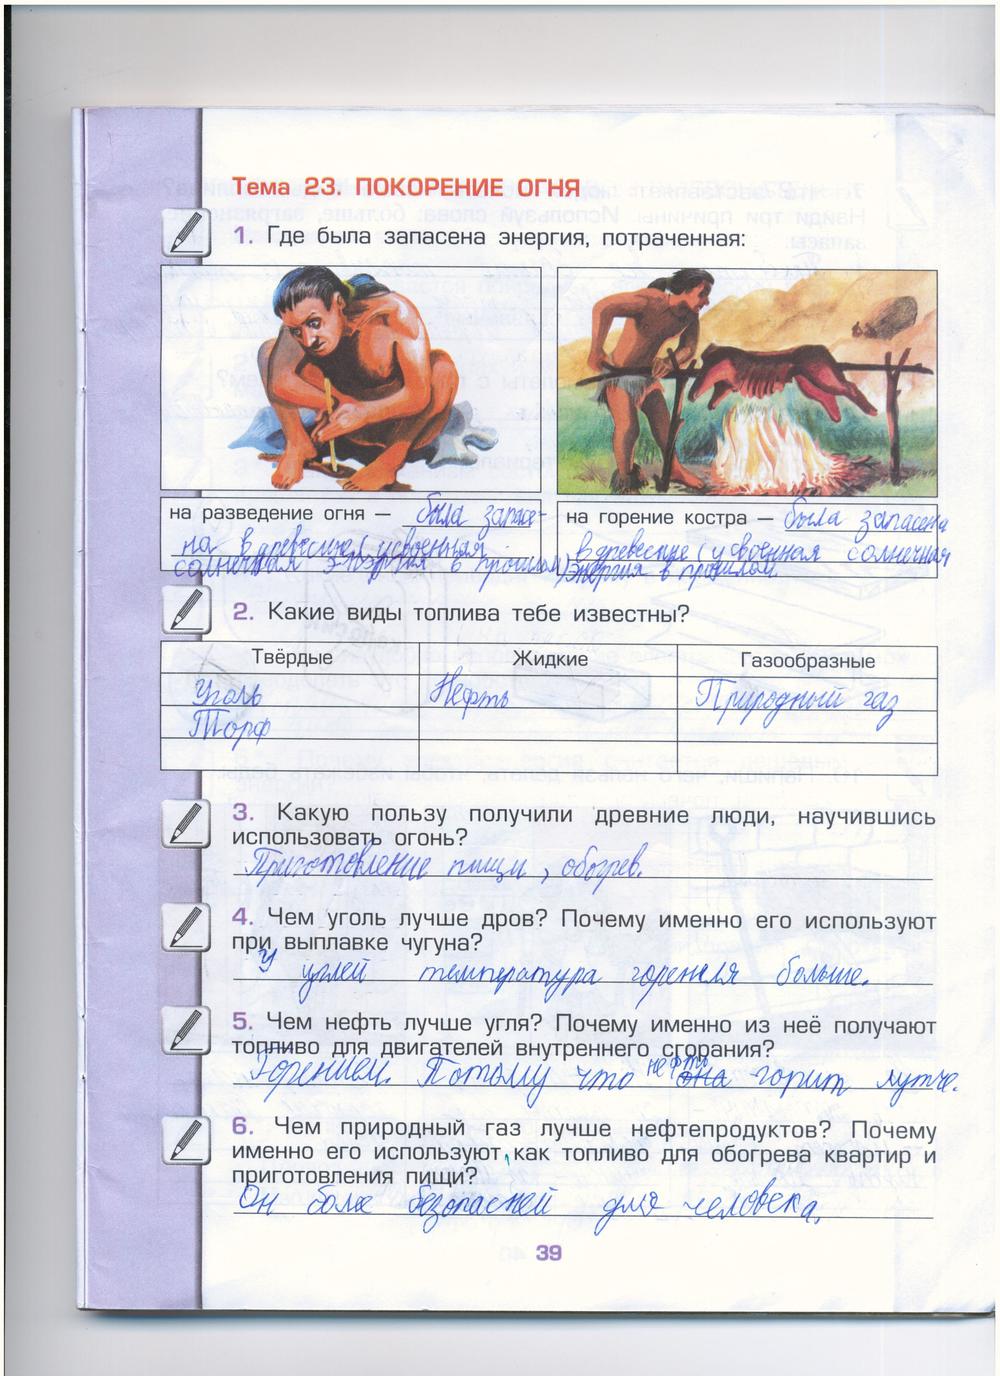 Тема 23. ПОКОРЕНИЕ ОГНЯ
1. Где была запасена энергия, потраченная:
на разведение огня — была запасе-
на в древесине (усвоенная
солнечная энергия в прошлом)
на горение костра — была запасена
в древесине (усвоенная солнечная
энергия в прошлом.
2. Какие виды топлива тебе известны?
Твёрдые Жидкие Газообразные
Уголь Нефть Природный газ
Торф
3. Какую пользу получили древние люди, научившись
использовать огонь?
Приготовление пищи, обогрев.
4. Чем уголь лучше дров? Почему именно его используют
при выплавке чугуна?
У углей температура горения больше.
5. Чем нефть лучше угля? Почему именно из неё получают
топливо для двигателей внутреннего сгорания?
Горением. Потому что нефть она горит лутче.
6. Чем природный газ лучше нефтепродуктов? Почему
именно его используют как топливо для обогрева квартир и
приготовления пищи?
Он более безопасней для человека.
39